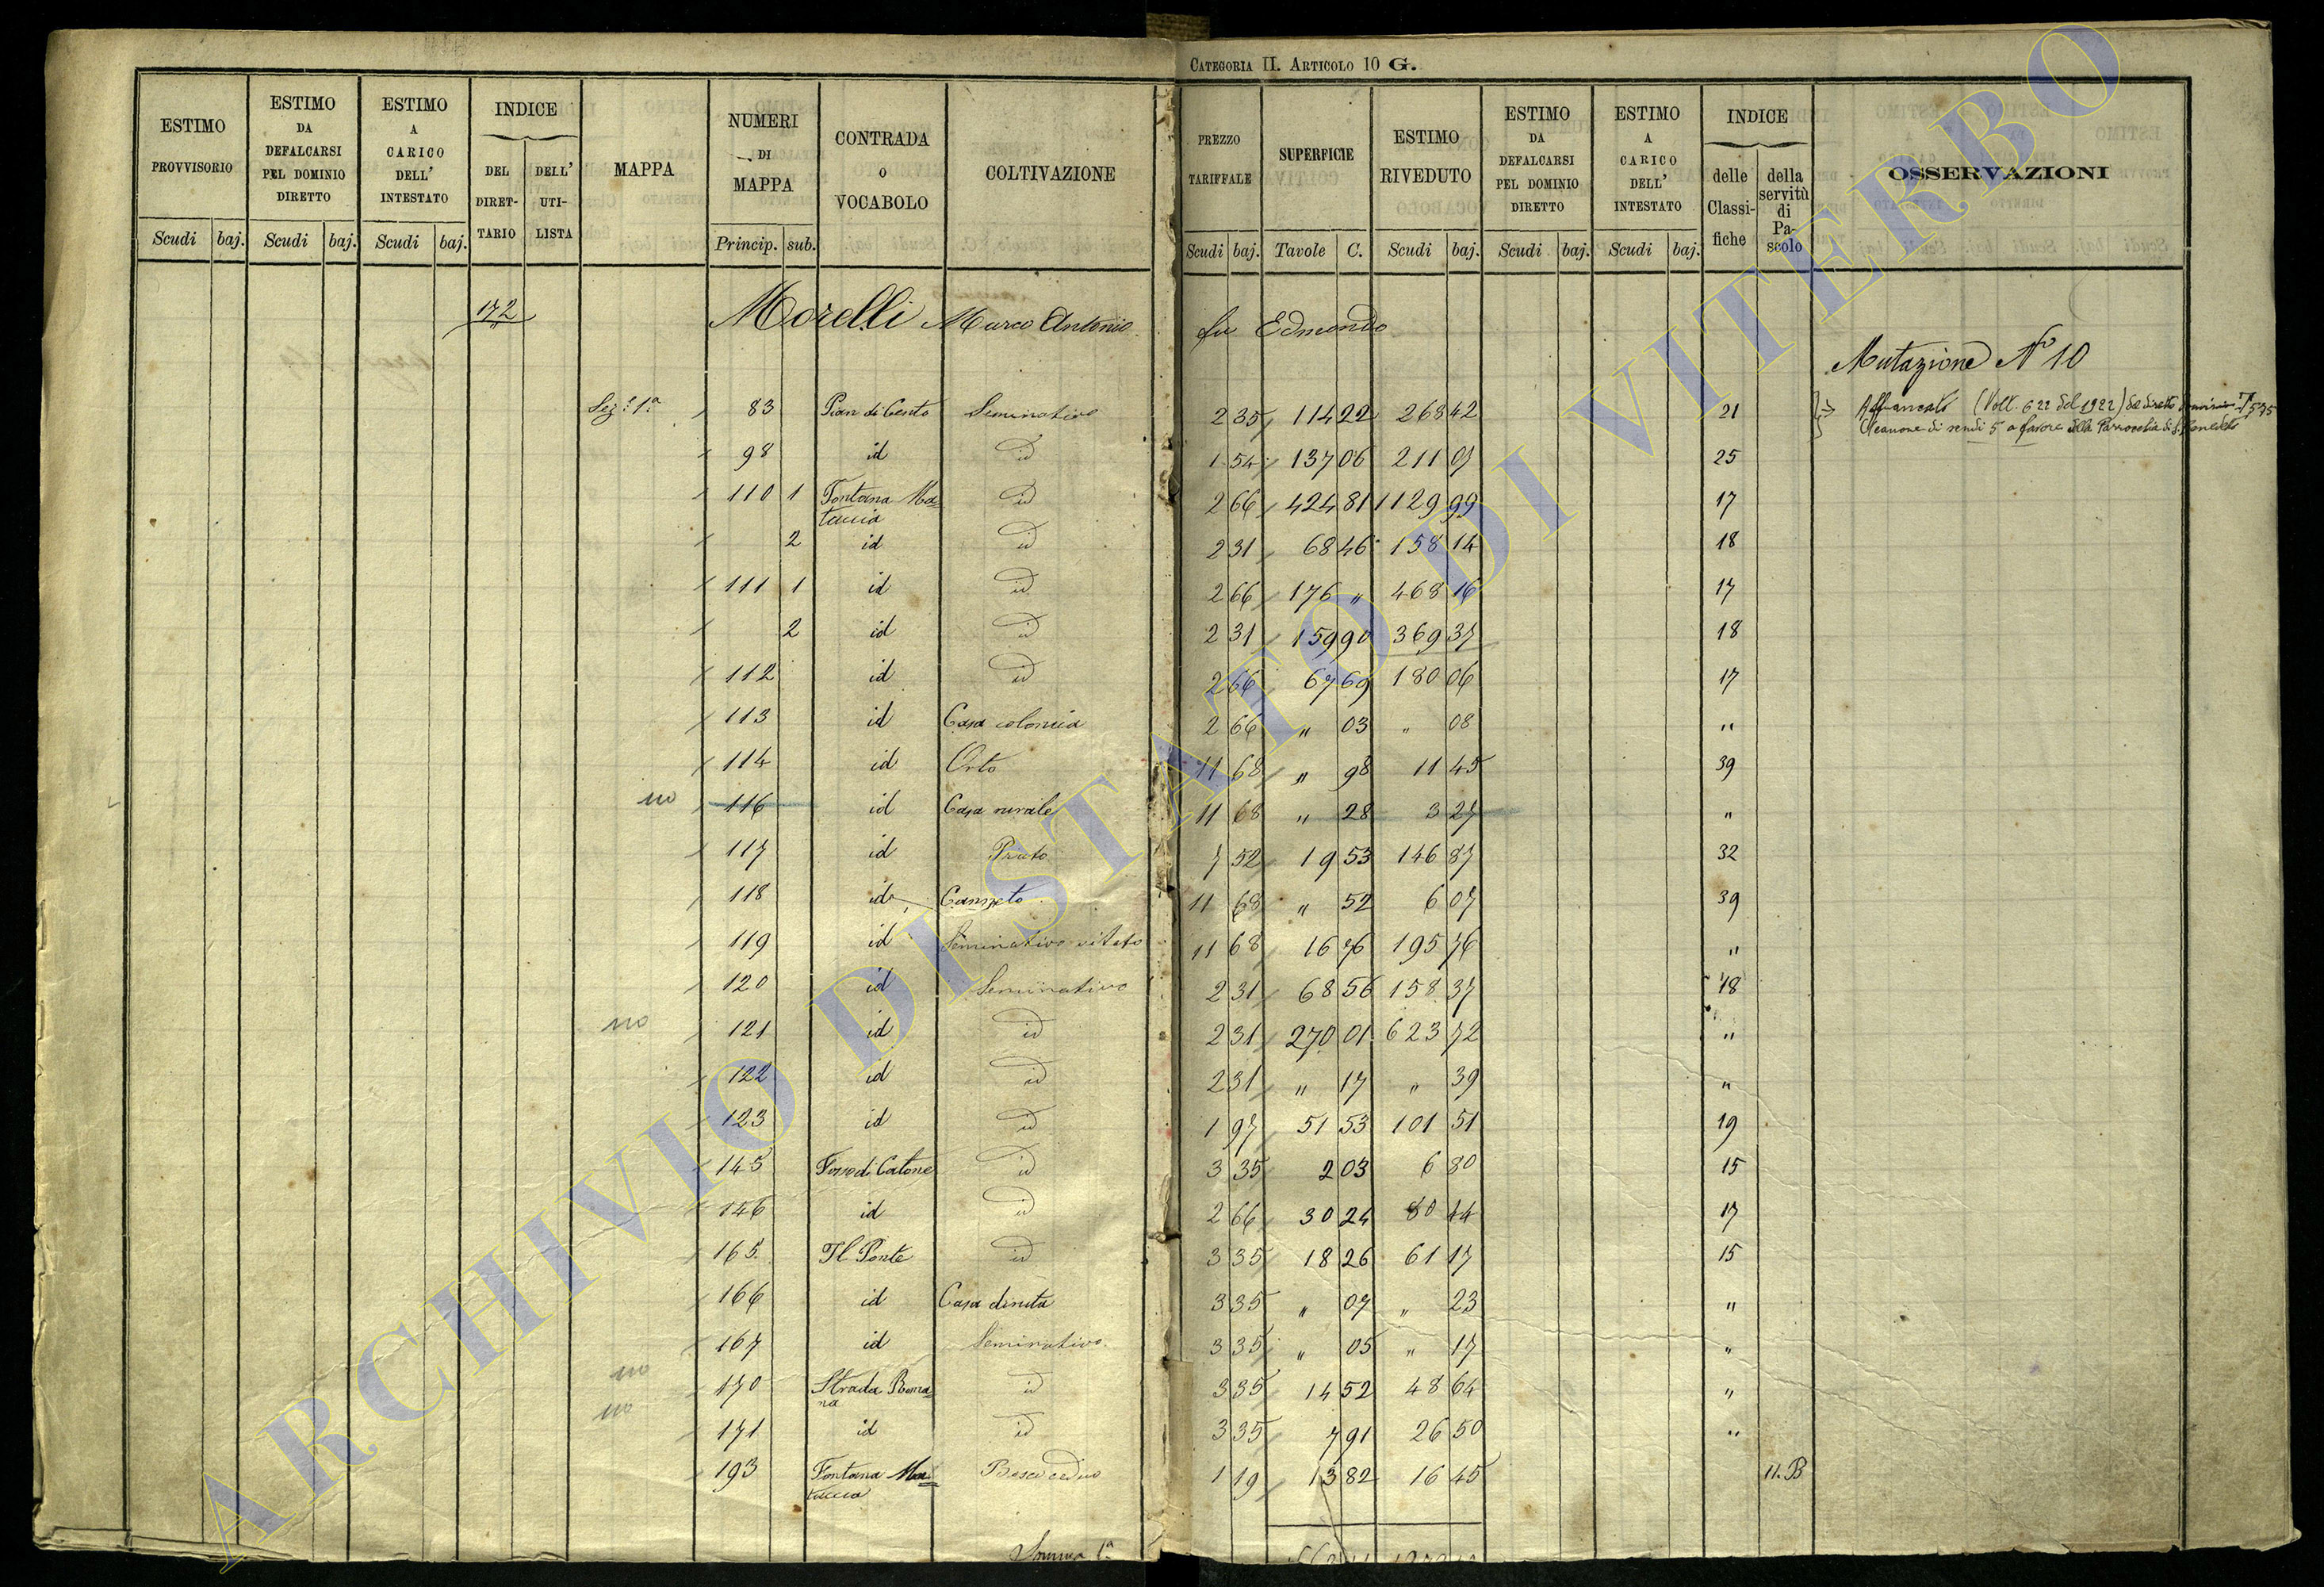 CATEGORIA II. ARTICOLO 10 G.
ESTIMO PROVVISORIO Scudi baj. ESTIMO DA DEFALCARSI PEL DOMINIO DIRETTO Scudi baj. ESTIMO A CARICO DELL' INTESTATO Scudi baj. INDICE DEL DIRET-TARIO DELL' UTI-LISTA MAPPA NUMERI DI MAPPA Princip. sub. CONTRADA O VOCABOLO COLTIVAZIONE PREZZO TARIFFALE Scudi baj. SUPERFICIE Tavole C. ESTIMO RIVEDUTO Scudi baj. ESTIMO DA DEFALCARSI PEL DOMINIO DIRETTO Scudi baj. ESTIMO A CARICO DELL' INTESTATO Scudi baj. INDICE delle Classi-fiche della servitù di Pa-scolo OSSERVAZIONI
172 Morelli Marco Antonio fu Edmondo
Mutazione N° 10
Sez: 1ª 83 Pian di Cento Seminativo 2 35 114 22 268 42 21 Affrancato (Volt. 622 del 1922) da diretto
canone di scudi 5 a favore della Parrocchia di S.
98 id id 1 54 137 06 211 07 25
110 1 Fontana Ma-
tuccia id 2 66 424 81 1129 99 17
2 id id 2 31 68 46 158 14 18
111 1 id id 2 66 176 " 468 16 17
2 id id 2 31 159 90 369 37 18
112 id id 2 66 67 69 180 06 17
113 id Casa colonica 2 66 " 03 " 08 "
114 id Orto 11 68 " 98 11 45 39
no 116 id Casa rurale 11 68 " 28 3 27 "
117 id Prato 7 52 19 53 146 87 32
118 id Canneto 11 68 " 52 6 07 39
119 id Seminativo vitato 11 68 16 76 195 76 "
120 id Seminativo 2 31 68 56 158 37 18
no 121 id id 2 31 270 01 623 72 "
122 id id 2 31 " 17 " 39 "
123 id id 1 97 51 53 101 51 19
145 Fosso di Catone id 3 35 2 03 6 80 15
146 id id 2 66 30 24 80 44 17
165 Il Ponte id 3 35 18 26 61 17 15
166 id Casa diruta 3 35 " 07 " 23 "
167 id Seminativo 3 35 " 05 " 17 "
no 170 Strada Roma-
na id 3 35 14 52 48 64 "
no 171 id id 3 35 7 91 26 50 "
193 Fontana Ma-
tuccia Bosco ceduo 1 19 13 82 16 45 11.B
Somma 1ª
ARCHIVIO DI STATO DI VITERBO